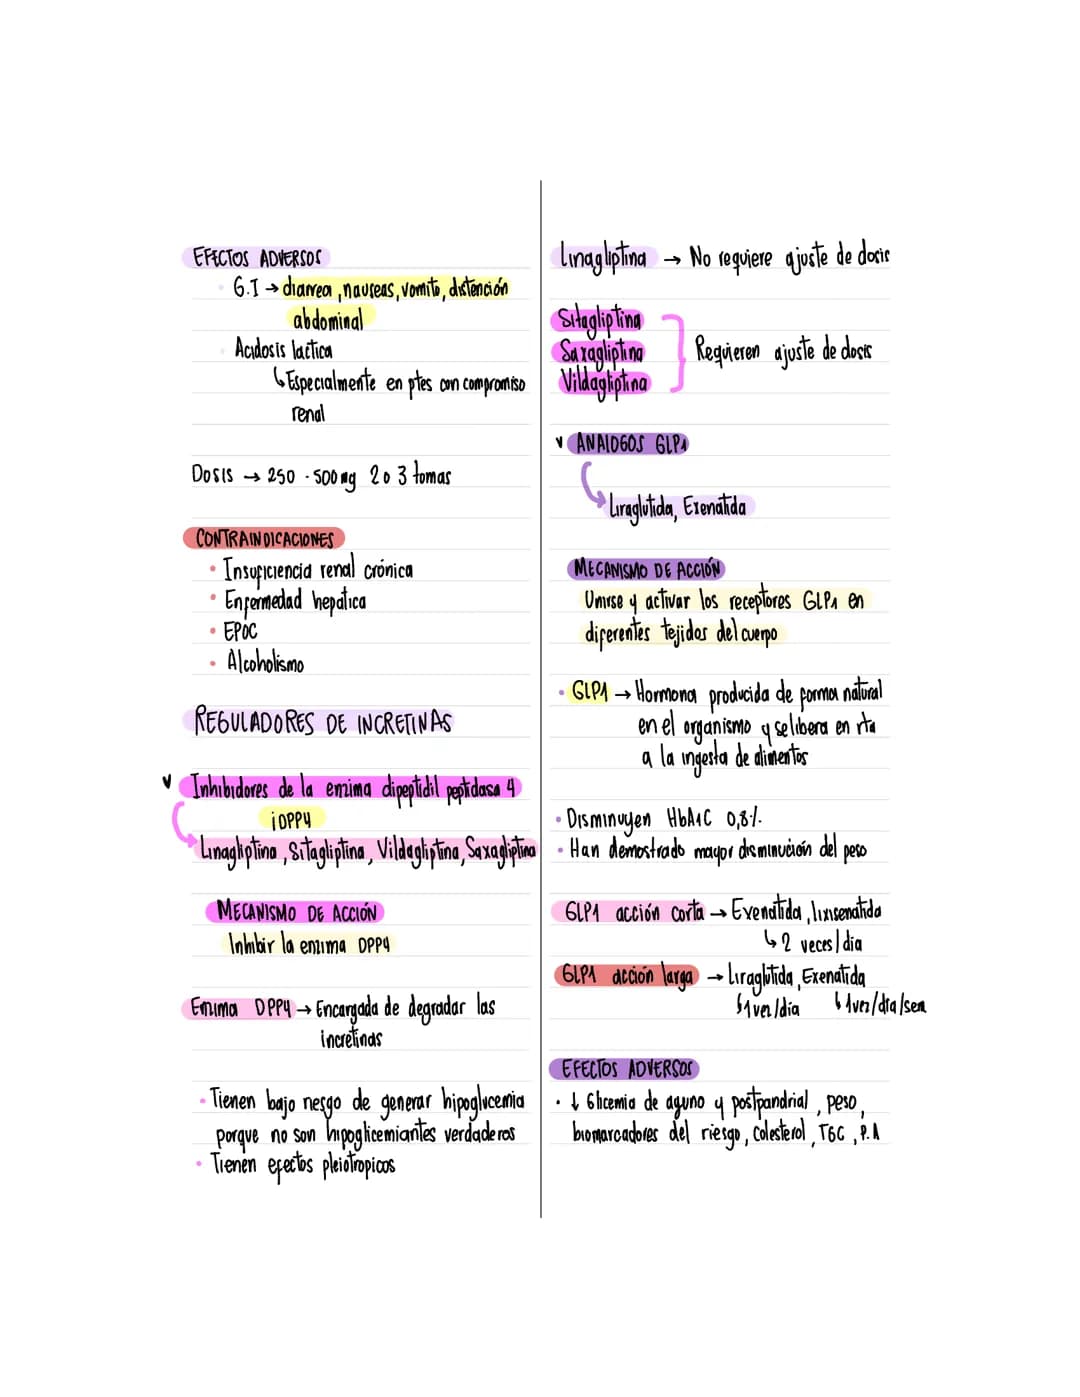 EFECTOS ADVERSOS
G.I → diarrea, nauseas, vomito, distención
abdominal
Acidosis lactica
↳ Especialmente en ptes con compromiso
renal
Dosis → 250 - 500 mg 2 o 3 tomas
CONTRAINDICACIONES
• Insuficiencia renal crónica
• Enfermedad hepatica
• EPOC
• Alcoholismo
REGULADORES DE INCRETINAS
Inhibidores de la enzima dipeptidil peptidasa 4
iDPP4
Linagliptina, Sitagliptina, Vildagliptina, Saxagliptina
MECANISMO DE ACCIÓN
Inhibir la enzima DPP4
Enzima DPP4 → Encargada de degradar las
incretinas
• Tienen bajo riesgo de generar hipoglucemia
porque no son hipoglicemiantes verdaderos
• Tienen efectos pleiotropicos
Linagliptina → No requiere ajuste de dosis
Sitagliptina
Saxagliptina
Vildagliptina
Requieren ajuste de dosis
ANALOGOS GLP1
Liraglutida, Exenatida
MECANISMO DE ACCIÓN
Unirse y activar los receptores GLP1 en
diferentes tejidos del cuerpo
• GLP1 → Hormona producida de forma natural
en el organismo y se libera en rta
a la ingesta de alimentos
• Disminuyen HbA1C 0,8%
• Han demostrado mayor disminución del peso
GLP1 acción corta → Exenatida, lixisenatida
↳ 2 veces/dia
GLP1 acción larga → Liraglutida, Exenatida
↳ 1 vez/dia ↳ 1 vez/dia/sem
EFECTOS ADVERSOS
• ↓ Glicemia de ayuno y postpandrial, peso,
biomarcadores del riesgo, colesterol, TGC, P.A